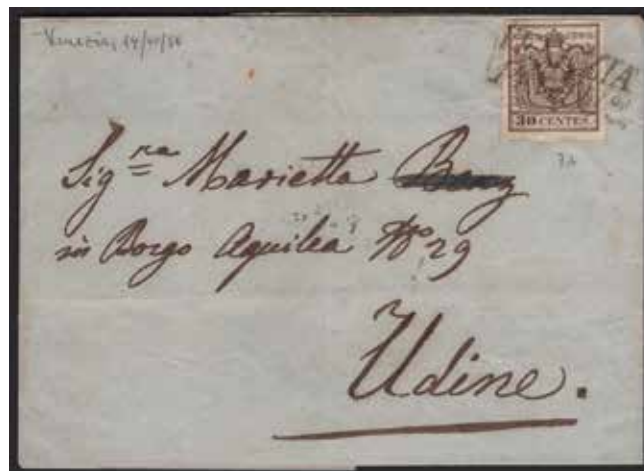 Venezia,
CIA
30 CENTES.
Sig.ra Marietta
in Borgo Aquilea No 29
Udine.